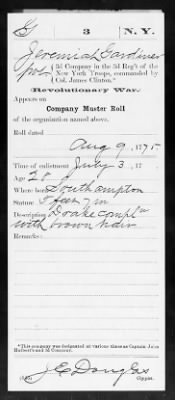 G | 3 | N. Y.
Jeremiah Gardiner
3d Company in the 3d Reg't of the
New York Troops, commanded by
Col. James Clinton.*
Revolutionary War.
Appears on
Company Muster Roll
of the organization named above.
Roll dated
Aug 9, 1775
Time of enlistment July 3, 17
Age 20
Where born Southampton
Stature 5 feet 7 in
Description
with brown hair
Remarks:
*This company was designated at various times as Captain John
Hulbert's and 3d Company.
J E Douglas
Copyist.